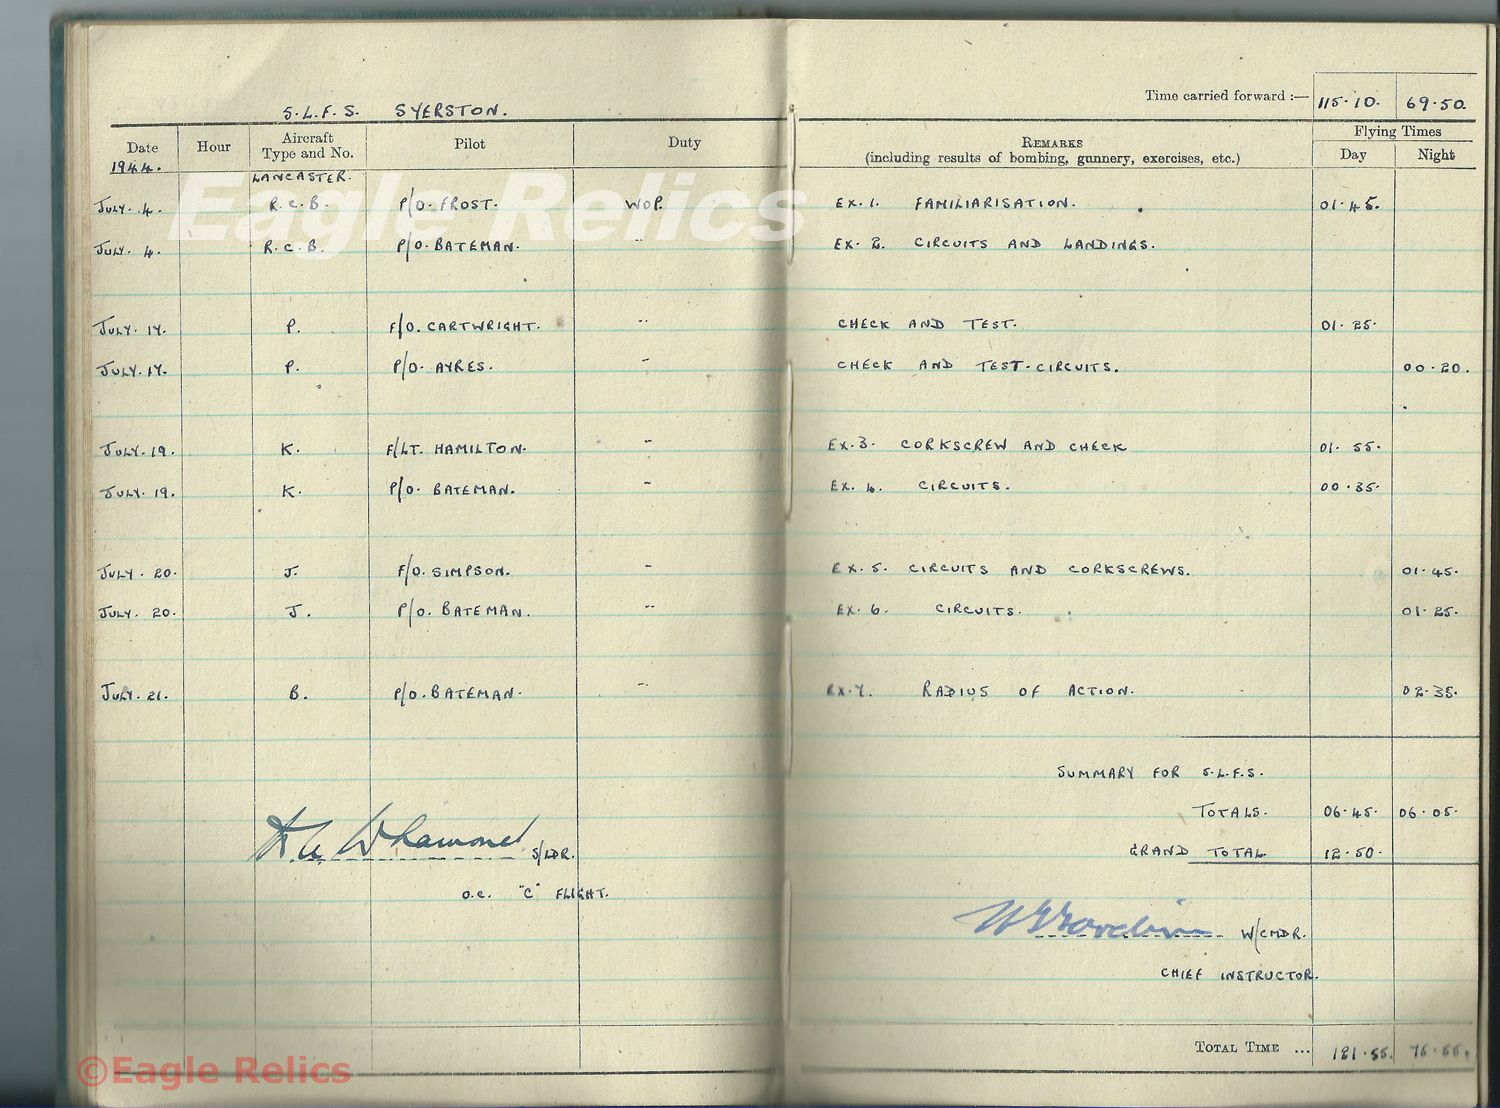 S.L.F.S. SYERSTON.
Time carried forward :— 115.10. 69.50.
Date Hour Aircraft Type and No. Pilot Duty REMARKS (including results of bombing, gunnery, exercises, etc.) Flying Times Day Night
1944.
LANCASTER.
JULY. 4. R.C.B. P/O. FROST. WOP. EX. 1. FAMILIARISATION. 01.45.
JULY. 4. R.C.B. P/O. BATEMAN. " EX. 2. CIRCUITS AND LANDINGS.
JULY. 17. P. F/O. CARTWRIGHT. " CHECK AND TEST. 01.25.
JULY. 17. P. P/O. AYRES. " CHECK AND TEST-CIRCUITS. 00.20.
JULY. 19. K. F/LT. HAMILTON. " EX. 3. CORKSCREW AND CHECK 01.55.
JULY. 19. K. P/O. BATEMAN. " EX. 4. CIRCUITS. 00.35.
JULY. 20. J. F/O. SIMPSON. " EX. 5. CIRCUITS AND CORKSCREWS. 01.45.
JULY. 20. J. P/O. BATEMAN. " EX. 6. CIRCUITS. 01.25.
JULY. 21. B. P/O. BATEMAN. " EX. 7. RADIUS OF ACTION. 02.35.
SUMMARY FOR S.L.F.S.
TOTALS. 06.45. 06.05.
GRAND TOTAL 12.50.
S/LDR.
O.C. "C" FLIGHT.
W/CMDR.
CHIEF INSTRUCTOR.
TOTAL TIME ... 121.55. 75.55.
Eagle Relics
©Eagle Relics